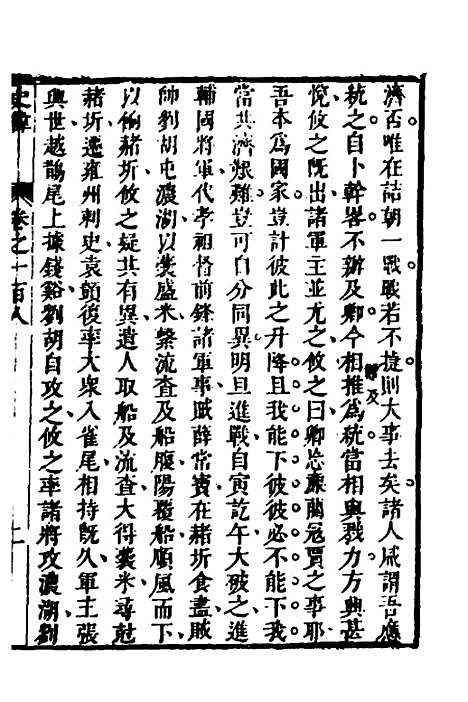 濟否唯在詰朝一戰戰若不捷則大事去矣諸人咸謂吾應
統之自卜幹畧不辦及卿今相推為統當相與戮力方興甚
悅攸之既出諸軍主並尤之攸之曰卿忘廉藺寇賈之事耶
吾本為國家豈計彼此之升降且我能下彼彼必不能下我
當共濟艱難豈可自分同異明旦進戰自寅訖午大破之進
輔國將軍代孝祖督前鋒諸軍事賊薛常寶在赭圻食盡賊
帥劉胡屯濃湖以囊盛米繫流查及船腹陽覆船順風而下
以餉赭圻攸之疑其有異遣人取船及流查大得囊米尋尅
赭圻遷雍州刺史袁顗復率大衆入雀尾相持既久軍主張
興世越鵲尾上據錢谿劉胡自攻之攸之率諸將攻濃湖劉
卷之一百八